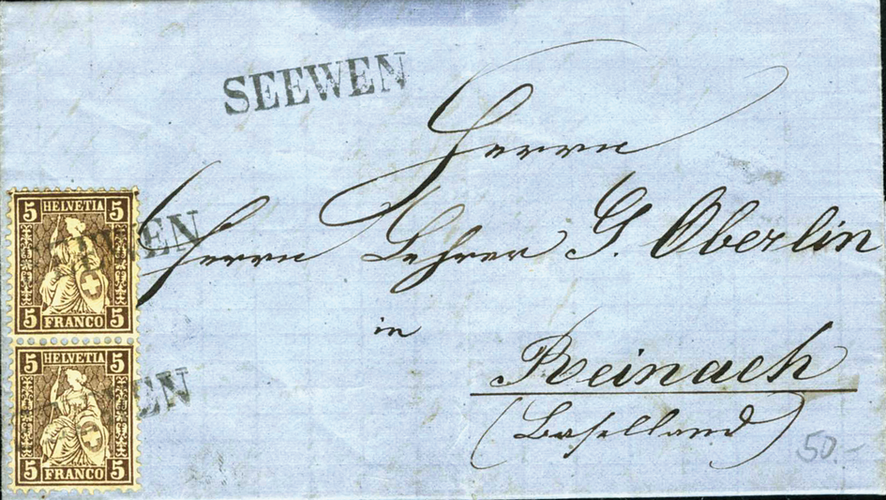 SEEWEN
Herrn
Herrn Lehrer G. Oberlin
in
Reinach
(Baselland)
50.-
5 HELVETIA 5
EWEN
5 FRANCO 5
5 HELVETIA 5
EWEN
5 FRANCO 5